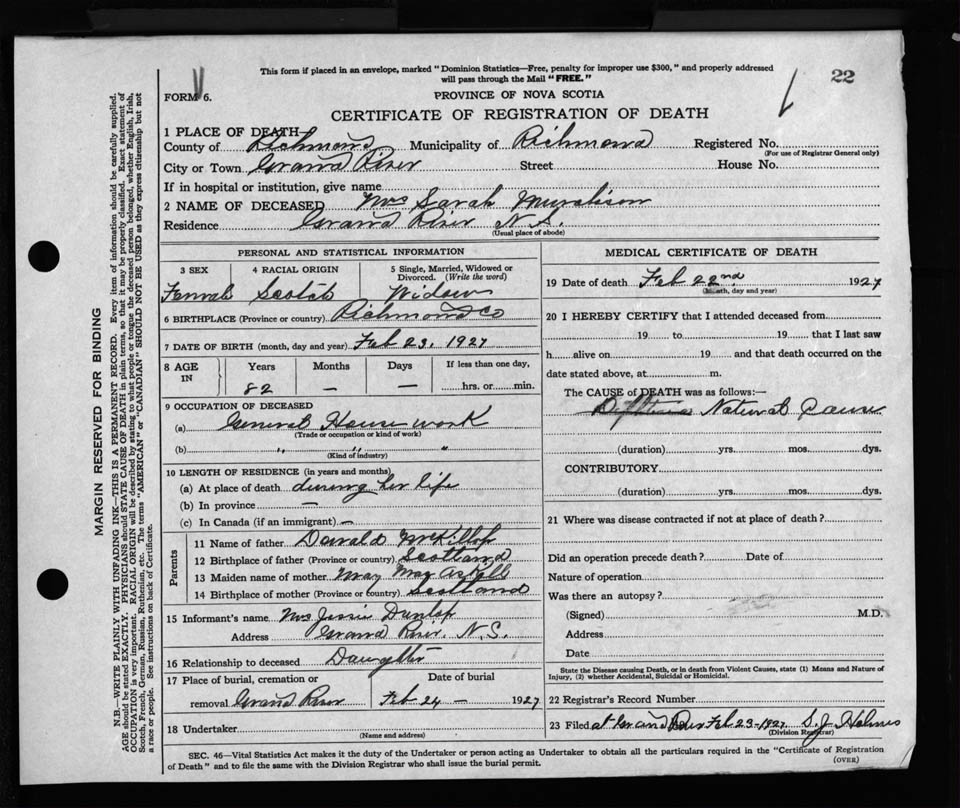 This form if placed in an envelope, marked "Dominion Statistics—Free, penalty for improper use $300," and properly addressed
will pass through the Mail "FREE."
22
FORM 6.
PROVINCE OF NOVA SCOTIA
CERTIFICATE OF REGISTRATION OF DEATH
1 PLACE OF DEATH
County of Richmond Municipality of Richmond Registered No.
(For use of Registrar General only)
City or Town Grand River Street House No.
If in hospital or institution, give name
2 NAME OF DECEASED Mrs Sarah Murchison
Residence Grand River N.S.
(Usual place of abode)
PERSONAL AND STATISTICAL INFORMATION
3 SEX 4 RACIAL ORIGIN 5 Single, Married, Widowed or
Divorced. (Write the word)
Female Scotch Widow
6 BIRTHPLACE (Province or country) Richmond Co
7 DATE OF BIRTH (month, day and year) Feb 23, 1927
8 AGE IN Years Months Days If less than one day,
82 — — hrs. or min.
9 OCCUPATION OF DECEASED
(a) General House work
(Trade or occupation or kind of work)
(b) " " "
(Kind of industry)
10 LENGTH OF RESIDENCE (in years and months)
(a) At place of death during her life
(b) In province —
(c) In Canada (if an immigrant) —
Parents
11 Name of father Donald McKillop
12 Birthplace of father (Province or country) Scotland
13 Maiden name of mother May
14 Birthplace of mother (Province or country) Scotland
15 Informant's name Mrs Jessie Dunlop
Address Grand River. N.S.
16 Relationship to deceased Daughter
17 Place of burial, cremation or Date of burial
removal Grand River Feb 24 — 1927
18 Undertaker
(Name and address)
MEDICAL CERTIFICATE OF DEATH
19 Date of death Feb 22nd. 1927
(Month, day and year)
20 I HEREBY CERTIFY that I attended deceased from
19 to 19 that I last saw
h alive on 19 and that death occurred on the
date stated above, at m.
The CAUSE of DEATH was as follows:—
Natural Cause
(duration) yrs. mos. dys.
CONTRIBUTORY
(duration) yrs. mos. dys.
21 Where was disease contracted if not at place of death?
Did an operation precede death? Date of
Nature of operation
Was there an autopsy?
(Signed) M.D.
Address
Date
State the Disease causing Death, or in death from Violent Causes, state (1) Means and Nature of
Injury, (2) whether Accidental, Suicidal or Homicidal.
22 Registrar's Record Number
23 Filed at Grand River Feb 23-1927. S.J. Holmes
(Division Registrar)
SEC. 46—Vital Statistics Act makes it the duty of the Undertaker or person acting as Undertaker to obtain all the particulars required in the "Certificate of Registration
of Death" and to file the same with the Division Registrar who shall issue the burial permit.
(OVER)
MARGIN RESERVED FOR BINDING
N.B.—WRITE PLAINLY WITH UNFADING INK—THIS IS A PERMANENT RECORD. Every item of information should be carefully supplied.
AGE should be stated EXACTLY. PHYSICIANS should STATE CAUSE OF DEATH in plain terms, so that it may be properly classified. Exact statement of
OCCUPATION is very important. RACIAL ORIGIN will be described by stating to what people or tongue the deceased person belonged, whether English, Irish,
Scotch, French, German, Russian, Ruthenian, etc. The terms "AMERICAN" or "CANADIAN" SHOULD NOT BE USED as they express citizenship but not
a race or people. See instructions on back of Certificate.